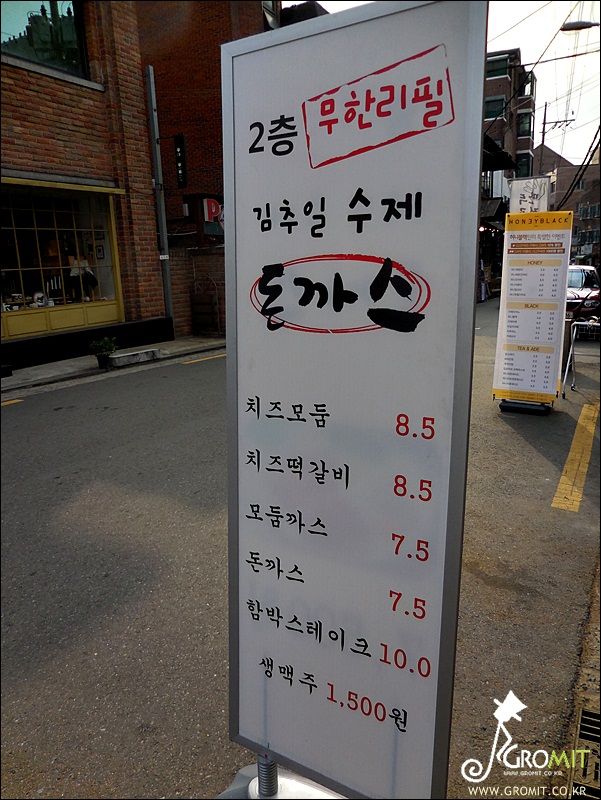 2층 무한리필
김추일 수제
돈까스
치즈모둠 8.5
치즈떡갈비 8.5
모둠까스 7.5
돈까스 7.5
함박스테이크 10.0
생맥주 1,500원
P
HONEYBLACK
HONEY
BLACK
TEA & ADE
GROMIT
WWW.GROMIT.CO.KR
WWW.GROMIT.CO.KR